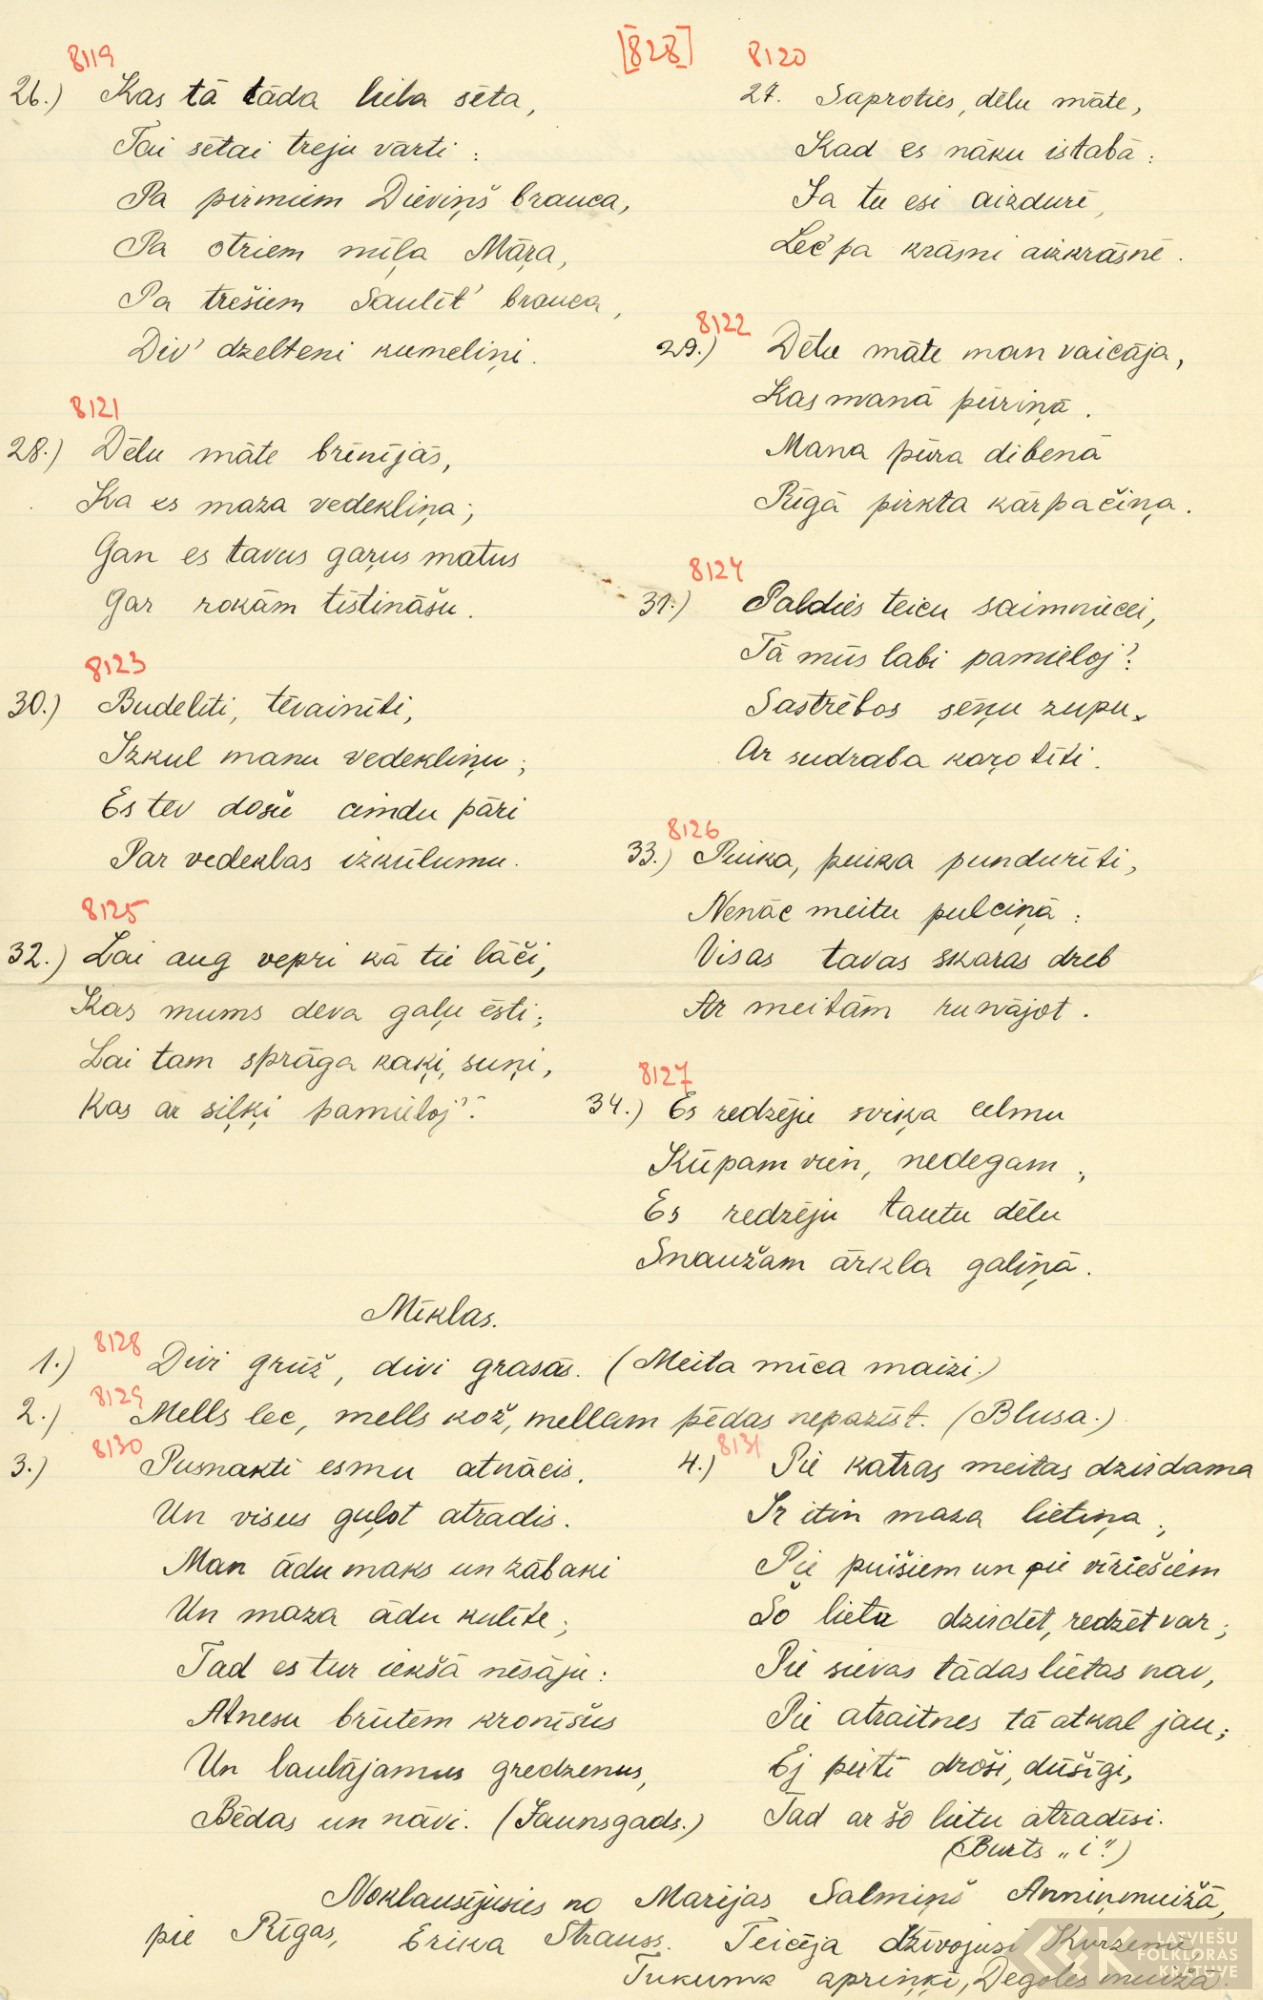 [828]
8119
26.) Kas tā tāda liela sēta,
Tai sētai treju vārti:
Pa pirmiem Dieviņš brauca,
Pa otriem mīļa Māŗa,
Pa trešiem Saulīt' brauca,
Div' dzelteni kumeliņi.
8120
27. Saproties, dēlu māte,
Kad es nāku istabā:
Ja tu esi aizdurē,
Lec pa krāsni aizkrāsnē.
8121
28.) Dēlu māte brīnījās,
Ka es maza vedekliņa;
Gan es tavus gaŗus matus
Gar rokām tīstināšu.
8122
29.) Dēlu māte man vaicāja,
Kas manā pūriņā.
Mana pūra dibenā
Rīgā pirkta kārpačiņa.
8123
30.) Budelīti, tēvainīti,
Izkul manu vedekliņu;
Es tev došu cimdu pāri
Par vedeklas izkūlumu.
8124
31.) Paldies teicu saimniecei,
Tā mūs labi pamieloj':
Sastrēbos sēņu zupu
Ar sudraba kaŗotīti.
8125
32.) Lai aug vepri kā tie lāči,
Kas mums deva gaļu ēsti;
Lai tam sprāga kaķi, suņi,
Kas ar siļķi pamieloj'.
8126
33.) Puika, puika pundurīti,
Nenāc meitu pulciņā:
Visas tavas skaras dreb
Ar meitām runājot.
8127
34.) Es redzēju sviķa celmu
Kūpam vien, nedegam;
Es redzēju tautu dēlu
Snaužam ārkla galiņā.
Mīklas.
1.) 8128 Divi grūž, divi grasās. (Meita mīca maizi.)
2.) 8129 Mells lec, mells kož, mellam pēdas nepazīst. (Blusa.)
3.) 8130 Pusnaktī esmu atnācis,
Un visus guļot atradis.
Man ādu maks un zābaki
Un maza ādu kulīte;
Tad es tur iekšā nēsāju:
Atnesu brūtēm kronīšus
Un laulājamus gredzenus,
Bēdas un nāvi. (Jaunsgads.)
4.) 8131 Pie katras meitas dzirdama
Ir itin maza lietiņa;
Pie puišiem un pie vīriešiem
Šo lietu dzirdēt, redzēt var;
Pie sievas tādas lietas nav,
Pie atraitnes tā atkal jau;
Ej pirtī droši, dūšīgi,
Tad ar šo lietu atradīsi.
(Burts „i".)
Noklausījusies no Marijas Salmiņš Anniņmuižā,
pie Rīgas, Erika Strauss. Teicēja dzīvojusi Kurzemē,
Tukuma apriņķī, Degoles muižā.
LATVIEŠU
FOLKLORAS
KRĀTUVE